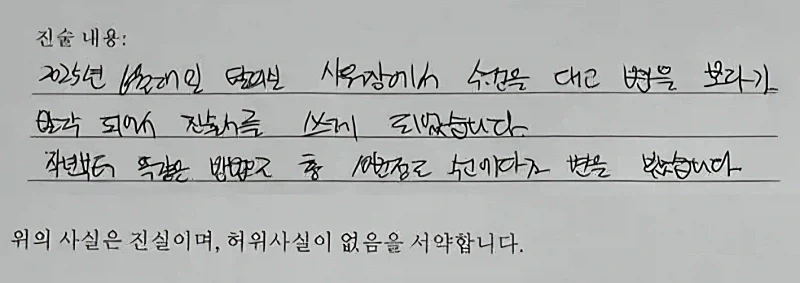 진술 내용:
2025년 샤워장에서 수건을 대고 변을 보다가
발각 되어서 진술서를 쓰게 되었습니다.
작년부터 똑같은 방법으로 총 10번정도 수건에다가 변을 봤습니다
위의 사실은 진실이며, 허위사실이 없음을 서약합니다.